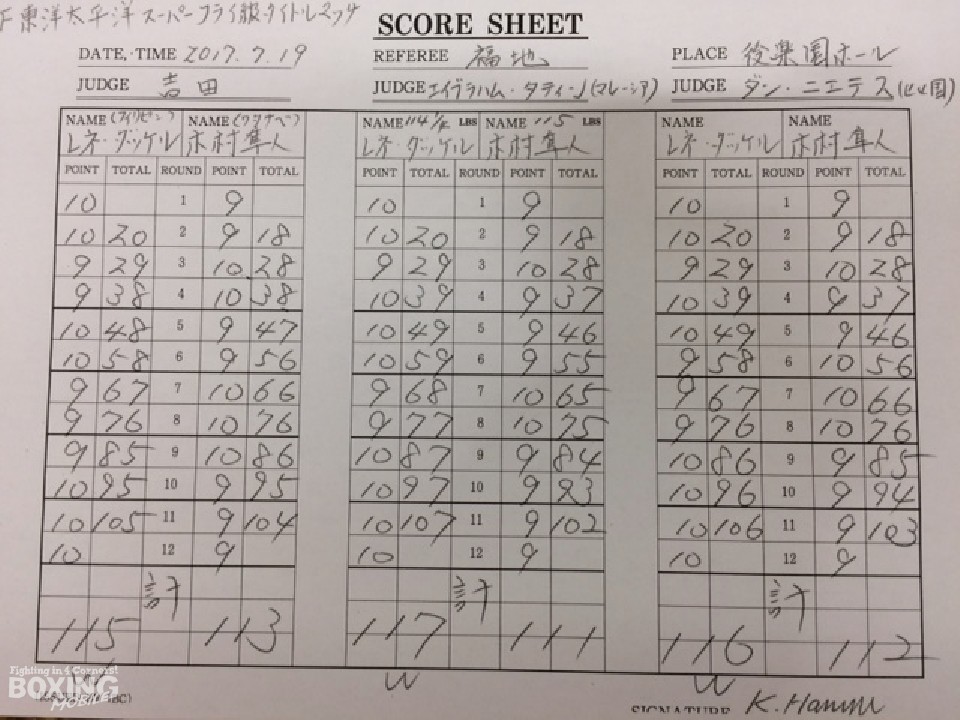 東洋太平洋スーパーフライ級タイトルマッチ
SCORE SHEET
DATE, TIME 2017.7.19 REFEREE 福地 PLACE 後楽園ホール
JUDGE 吉田 JUDGE エイブラハム・ (マレーシア) JUDGE ダン・ニエテス
NAME (フィリピン) NAME (ワタナベ) NAME 114 1/2 LBS NAME 115 LBS NAME NAME
レネ・ダッケル 木村隼人 レネ・ダッケル 木村隼人 レネ・ダッケル 木村隼人
POINT TOTAL ROUND POINT TOTAL POINT TOTAL ROUND POINT TOTAL POINT TOTAL ROUND POINT TOTAL
10 1 9 10 1 9 10 1 9
10 20 2 9 18 10 20 2 9 18 10 20 2 9 18
9 29 3 10 28 9 29 3 10 28 9 29 3 10 28
9 38 4 10 38 10 39 4 9 37 10 39 4 9 37
10 48 5 9 47 10 49 5 9 46 10 49 5 9 46
10 58 6 9 56 10 59 6 9 55 9 58 6 10 56
9 67 7 10 66 9 68 7 10 65 9 67 7 10 66
9 76 8 10 76 9 77 8 10 75 9 76 8 10 76
9 85 9 10 86 10 87 9 9 84 10 86 9 9 85
10 95 10 9 95 10 97 10 9 93 10 96 10 9 94
10 105 11 9 104 10 107 11 9 102 10 106 11 9 103
10 12 9 10 12 9 10 12 9
計 計 計
115 113 117 111 116 112
W W
Fighting in 4 Corners!
BOXING
MOBILE
SIGNATURE